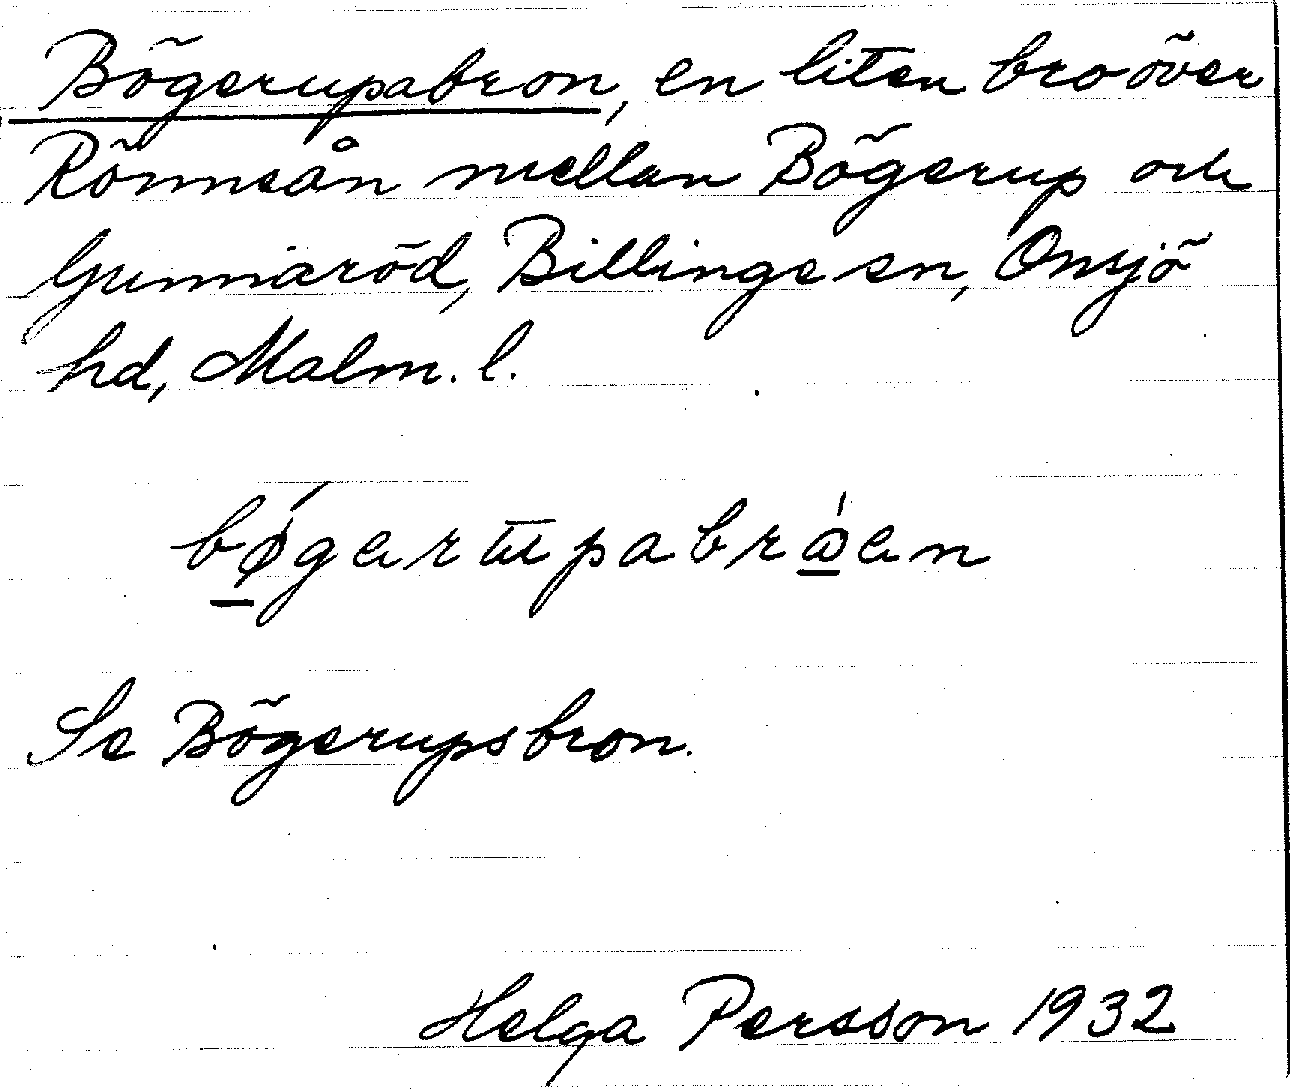 Bögerupabron, en liten bro över
Rönneån mellan Bögerup och
Gunnaröd, Billinge sn, Onsjö
hd, Malm. l.
Se Bögerupsbron.
Helga Persson 1932